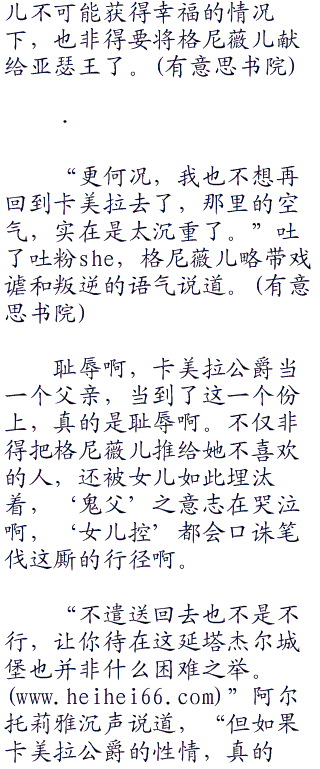 儿不可能获得幸福的情况
下，也非得要将格尼薇儿献
给亚瑟王了。(有意思书院)
.
“更何况，我也不想再
回到卡美拉去了，那里的空
气，实在是太沉重了。”吐
了吐粉she，格尼薇儿略带戏
谑和叛逆的语气说道。(有意
思书院)
耻辱啊，卡美拉公爵当
一个父亲，当到了这一个份
上，真的是耻辱啊。不仅非
得把格尼薇儿推给她不喜欢
的人，还被女儿如此埋汰
着，‘鬼父’之意志在哭泣
啊，‘女儿控’都会口诛笔
伐这厮的行径啊。
“不遣送回去也不是不
行，让你待在这延塔杰尔城
堡也并非什么困难之举。
(www.heihei66.com)”阿尔
托莉雅沉声说道，“但如果
卡美拉公爵的性情，真的